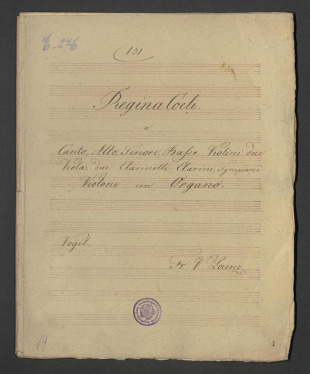 131
Regina Coeli
a
Canto, Alto, Tenore, Basso, Violini due
Viola, due Clarinetti, Clarini, Tympani
Violone con Organo.
Fr. V. Lorenz